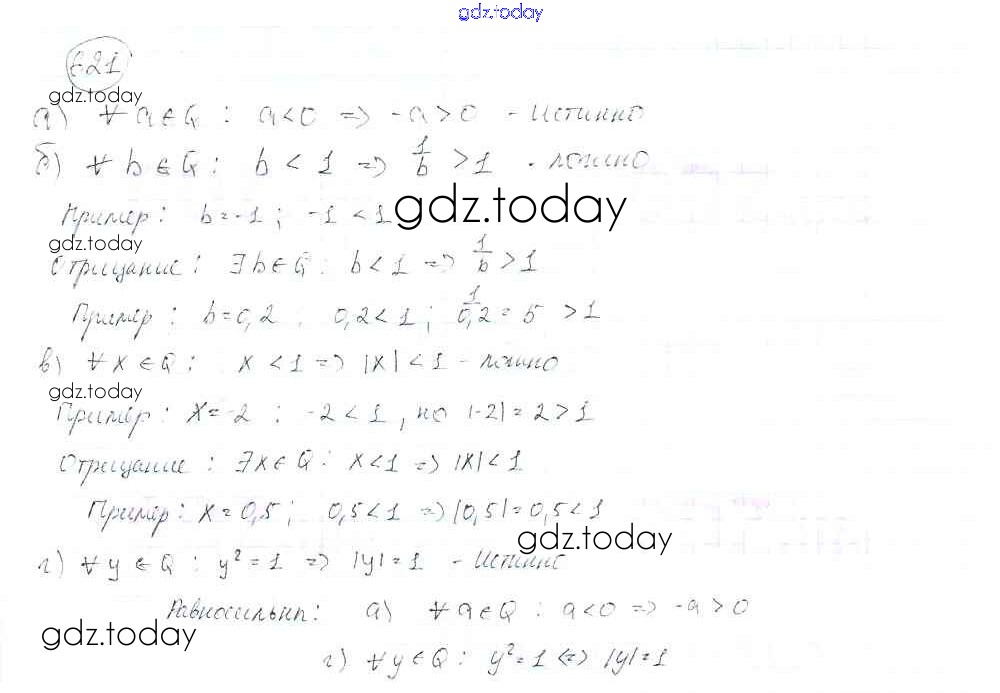 gdz.today
621
gdz.today
а) ∀ a ∈ Q : a < 0 => -a > 0 - Истинно
б) ∀ b ∈ Q : b < 1 => 1/b > 1 - ложно
Пример: b = -1 ; -1 < 1 gdz.today
gdz.today
Отрицание: ∃ b ∈ Q : b < 1 => 1/b > 1
Пример : b = 0,2 : 0,2 < 1 ; 1/0,2 = 5 > 1
в) ∀ x ∈ Q : x < 1 => |x| < 1 - ложно
gdz.today
Пример : x = -2 : -2 < 1 , но |-2| = 2 > 1
Отрицание : ∃ x ∈ Q : x < 1 => |x| < 1
Пример : x = 0,5 ; 0,5 < 1 => |0,5| = 0,5 < 1
gdz.today
г) ∀ y ∈ Q : y² = 1 => |y| = 1 - Истинно
Равносильны: а) ∀ a ∈ Q : a < 0 => -a > 0
gdz.today
г) ∀ y ∈ Q : y² = 1 <=> |y| = 1